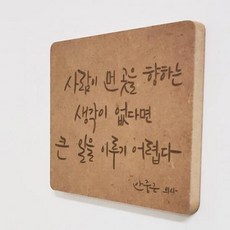 사람이 먼 곳을 향하는
생각이 없다면
큰 일을 이루기 어렵다
안중근 의사